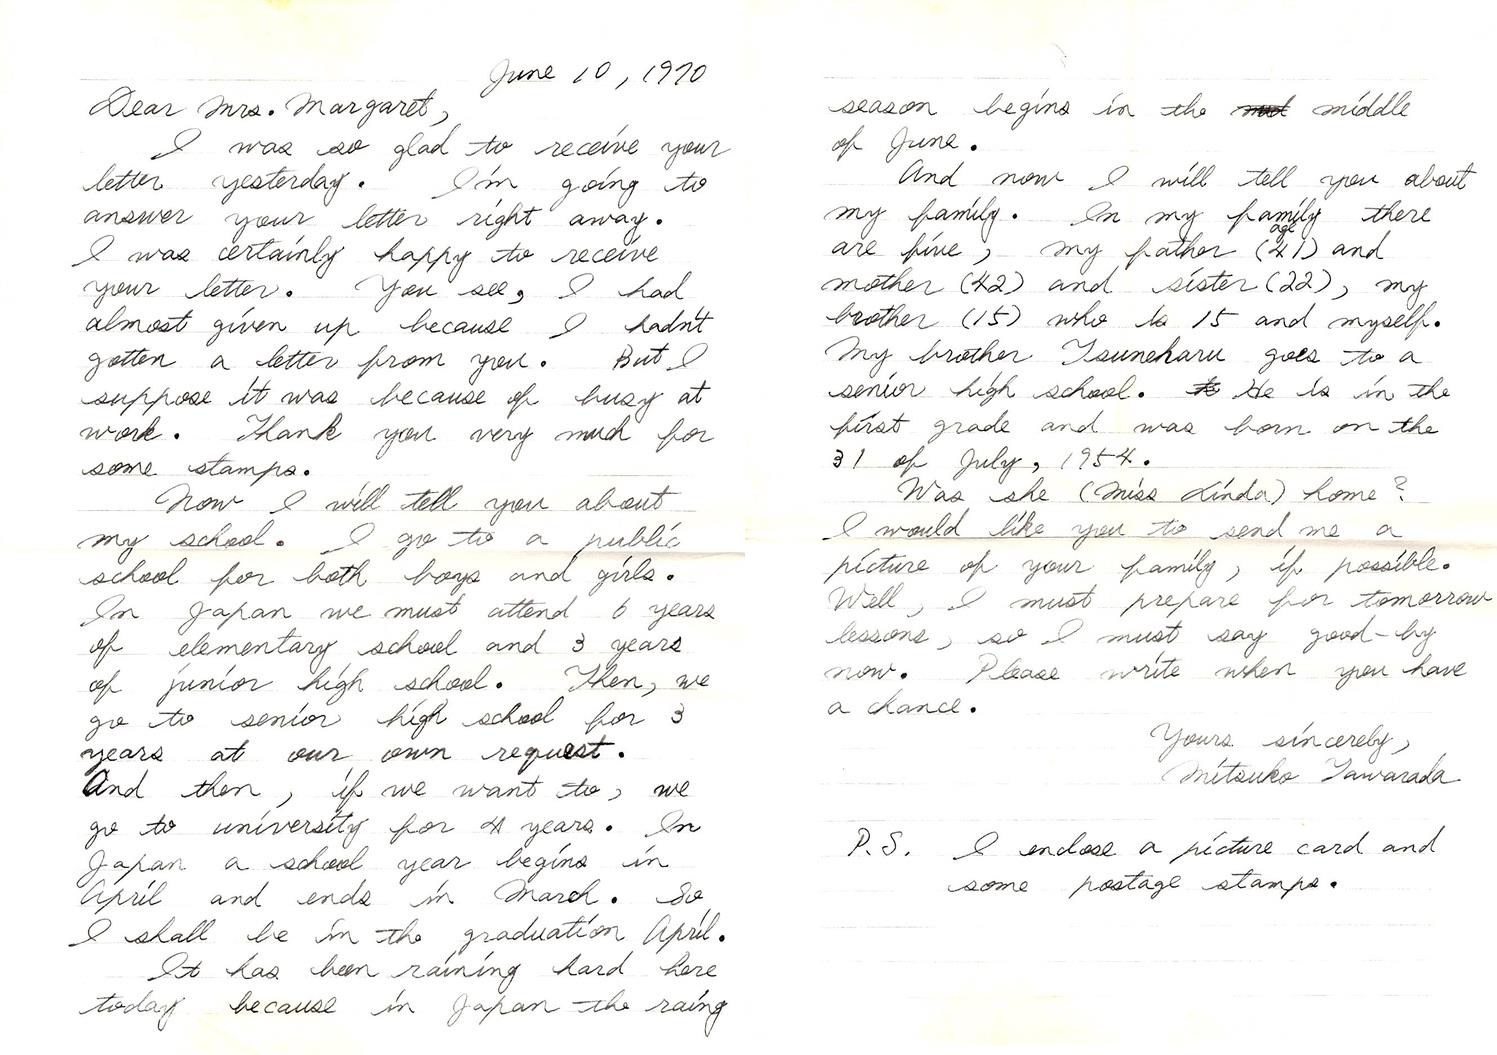 June 10, 1970
Dear Mrs. Margaret,
I was so glad to receive your
letter yesterday. I'm going to
answer your letter right away.
I was certainly happy to receive
your letter. You see, I had
almost given up because I hadn't
gotten a letter from you. But I
suppose it was because of busy at
work. Thank you very much for
some stamps.
Now I will tell you about
my school. I go to a public
school for both boys and girls.
In Japan we must attend 6 years
of elementary school and 3 years
of junior high school. Then, we
go to senior high school for 3
years at our own request.
And then, if we want to, we
go to university for 4 years. In
Japan a school year begins in
April and ends in March. So
I shall be in the graduation April.
It has been raining hard here
today because in Japan the raing
season begins in the middle
of June.
And now I will tell you about
my family. In my family there
age
are five, my father (41) and
mother (42) and sister (22), my
brother (15) who is 15 and myself.
My brother Tsuneharu goes to a
senior high school. He is in the
first grade and was born on the
31 of July, 1954.
Was she (Miss Linda) home?
I would like you to send me a
picture of your family, if possible.
Well, I must prepare for tomorrow
lessons, so I must say good-by
now. Please write when you have
a chance.
Yours sincereby,
Mitsuko Tawarada
P.S. I enclose a picture card and
some postage stamps.